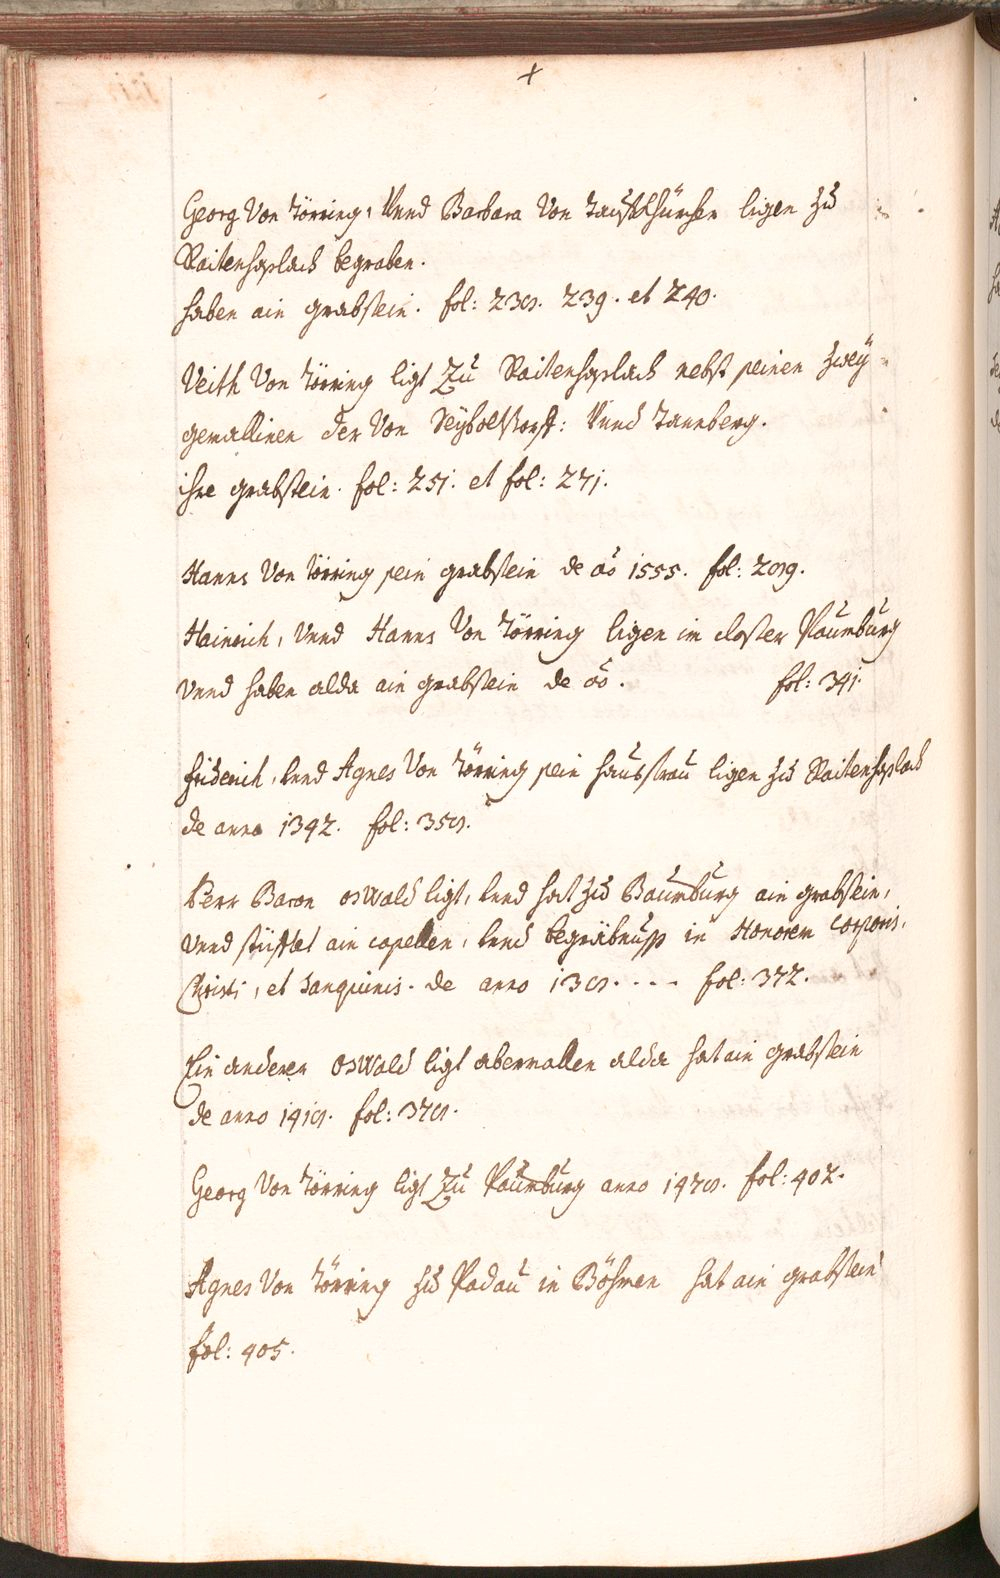 +
Georg Von Törring, Vnnd Barbara Von Taufkhürchen ligen zu
Raitenhaslach begraben.
haben ain grabstein. fol: 238. 239. et 240.
Veith Von Törring ligt Zu Raitenhaslach nebst seinen zweÿ
gemallinen der Von Seÿbolstorff: Vnnd Tannberg.
ihre grabstein. fol: 251. et fol: 271.
Hanns Von Törring sein grabstein de ao 1555. fol: 289.
Hainrich, Vnnd Hanns Von Törring ligen im closter Paumburg
Vnnd haben alda ain grabstein de ao. fol: 341.
friderich, Vnnd Agnes Von Törring sein hausfrau ligen zu Raitenhaslach
de anno 1342. fol: 358.
Herr Baron osWald ligt, Vnnd hat zu Baumburg ain grabstein,
Vnnd stüfftet ain capellen, Vnnd begräbnuss in Honorem Corporis.
Christi, et Sanguinis. de anno 138.... fol: 372.
Ein anderer OsWald ligt abermallen alda hat ain grabstein
de anno 1418. fol: 378.
Georg Von Törring ligt Zu Paumburg anno 1478. fol: 402.
Agnes Von Törring zu Padau in Böhmen hat ain grabstein
fol: 405.